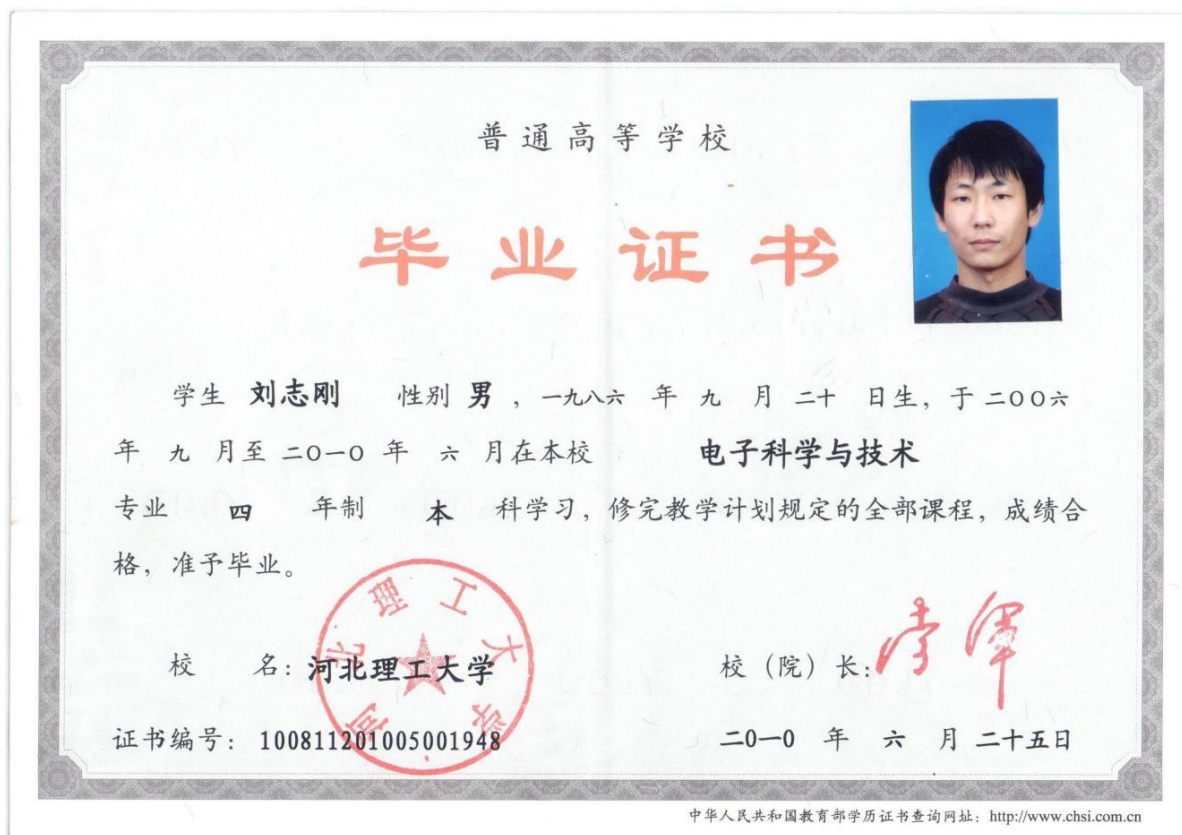 普通高等学校
毕业证书
学生 刘志刚 性别 男 ，一九八六 年 九 月 二十 日生，于 二00六
年 九 月至 二0一0 年 六 月在本校 电子科学与技术
专业 四 年制 本 科学习，修完教学计划规定的全部课程，成绩合
格，准予毕业。
河北理工大学
校 名：河北理工大学
校（院）长：
证书编号：100811201005001948
二0一0 年 六 月 二十五日
中华人民共和国教育部学历证书查询网址：http://www.chsi.com.cn